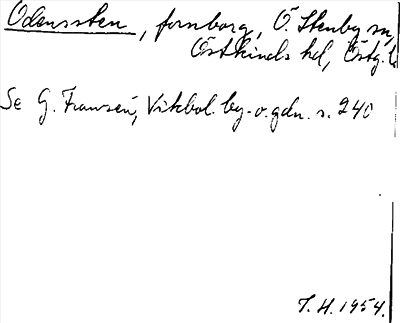 Odenssten, fornborg, Ö. Stenby sn,
Östkinds hd, Östg. l
Se G. Franzén, Vikbol. by- o. gdn. s. 240
T. H. 1954.